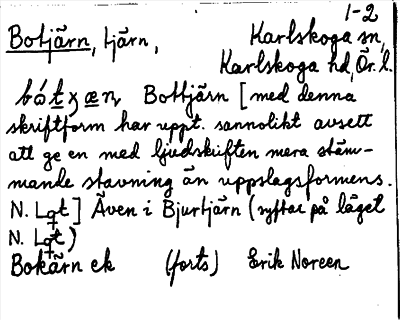 1-2
Botjärn, tjärn, Karlskoga sn,
Karlskoga hd, Ör. l.
Bottjärn [med denna
skriftform har uppt. sannolikt avsett
att ge en med ljudskriften mera stäm-
mande stavning än uppslagsformens.
N. Lgt] Även i Bjurtjärn (syftar på läget
N. Lgt)
Bokärn ek (forts) Erik Noreen